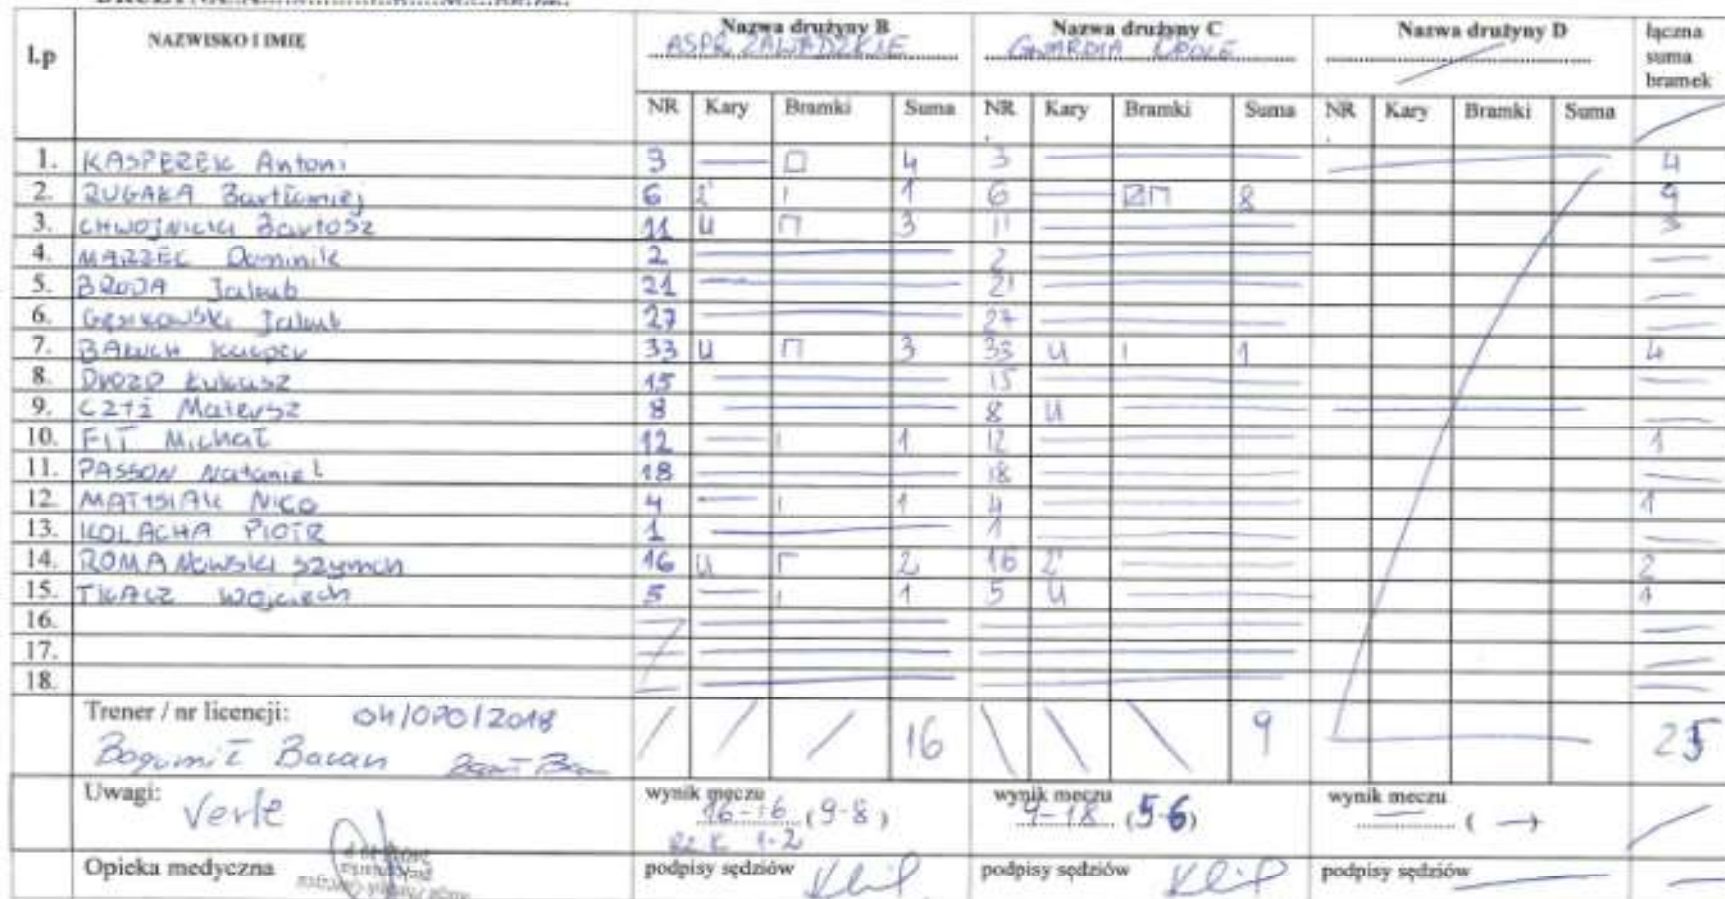 DRUŻYNA A
l.p NAZWISKO I IMIĘ Nazwa drużyny B Nazwa drużyny C Nazwa drużyny D łączna suma bramek
ASPR ZAWADZKIE GWARDIA OPOLE
NR Kary Bramki Suma NR Kary Bramki Suma NR Kary Bramki Suma
1. KASPEREK Antoni 3 — 4 3 — 4
2. RUGAŁA Bartłomiej 6 2' 1 6 — 8 9
3. CHWOJNICKI Bartosz 11 U 3 11 — 3
4. MARZEC Dominik 2 — 2 —
5. BRODA Jakub 21 — 21 —
6. Gęsikowski Jakub 27 — 27 —
7. BAŁUCH Kacper 33 U 3 33 U 1 4
8. DROZD Łukasz 15 — 15 —
9. CZYŻ Mateusz 8 — 8 U —
10. FIT Michał 12 — 1 12 — 1
11. PASSON Nataniel 18 — 18 —
12. MATYSIAK NICO 4 — 1 4 — 1
13. KOLACHA PIOTR 1 — 1 —
14. ROMANowski Szymon 16 U 2 16 2' — 2
15. TKACZ Wojciech 5 — 1 5 U — 1
16.
17.
18.
Trener / nr licencji: 04/OPO/2018 16 9 25
Bogumił Baran
Uwagi: Verte wynik meczu 16-16 (9-8) wynik meczu 9-18 (5-6) wynik meczu — ( — )
Rz. K 1-2
Opieka medyczna podpisy sędziów podpisy sędziów podpisy sędziów